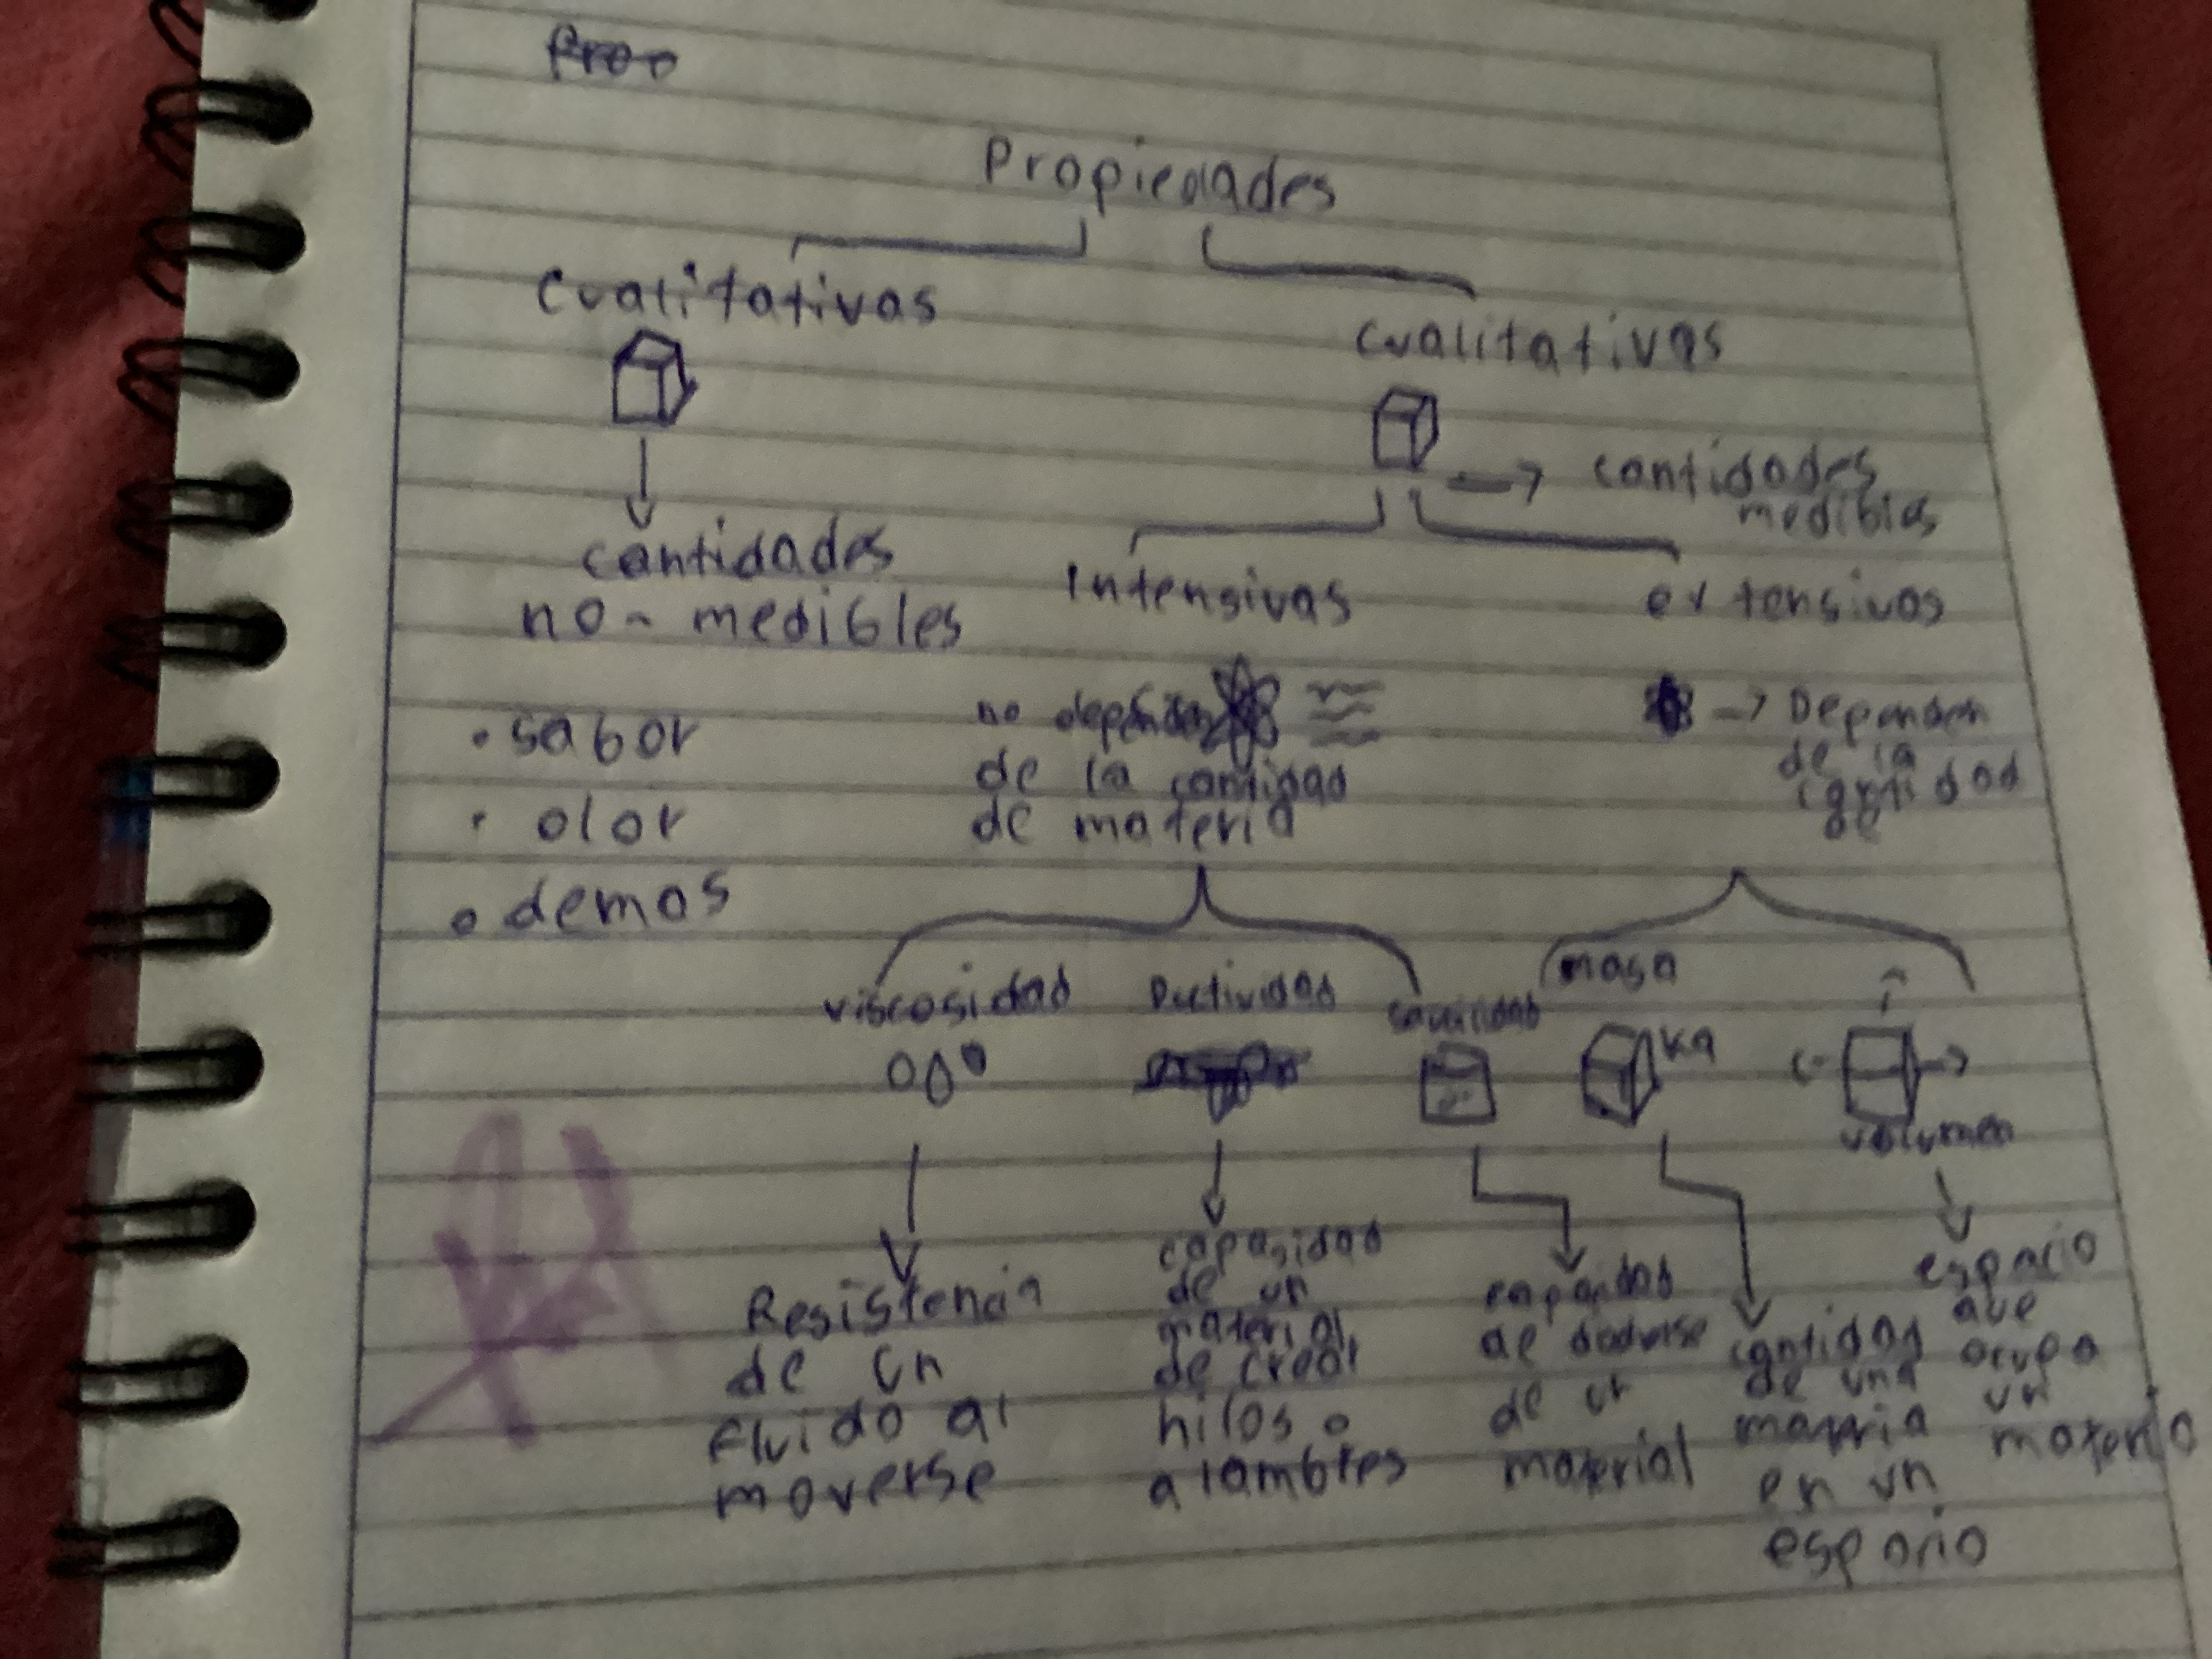 Proo
Propiedades
Cualitativas
cualitativas
cantidades
medibles
cantidades
no- medibles
Intensivas
extensivas
• sabor
• olor
• demas
no dependen
de la cantidad
de materia
→ Dependen
de la
cantidad
de
viscosidad
Ductividad
masa
Kg
volumen
Resistencia
de un
fluido al
moverse
capasidad
de un
material
de crear
hilos o
alambres
capasidad
de
de un
material
cantidad
de una
materia
en un
espario
espacio
que
ocupa
un
materia